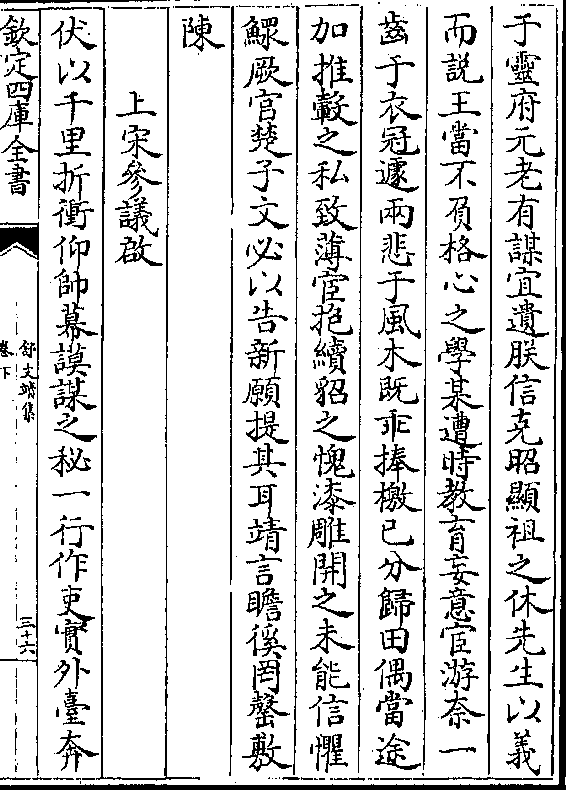 于靈府元老有謀宜遺朕信克昭顯祖之休先生以義
而説王當不負格心之學某遭時教育妄意宦游奈一
齒于衣冠遽兩悲于風木既乖捧檄已分歸田偶當途
加推轂之私致薄宦抱續貂之愧漆雕開之未能信懼
鰥厥官楚子文必以告新願提其耳靖言瞻徯罔罄敷
陳
上宋參議啟
伏以千里折衝仰帥幕謨謀之秘一行作吏實外臺奔
欽定四庫全書
舒文靖集
卷下
三十六